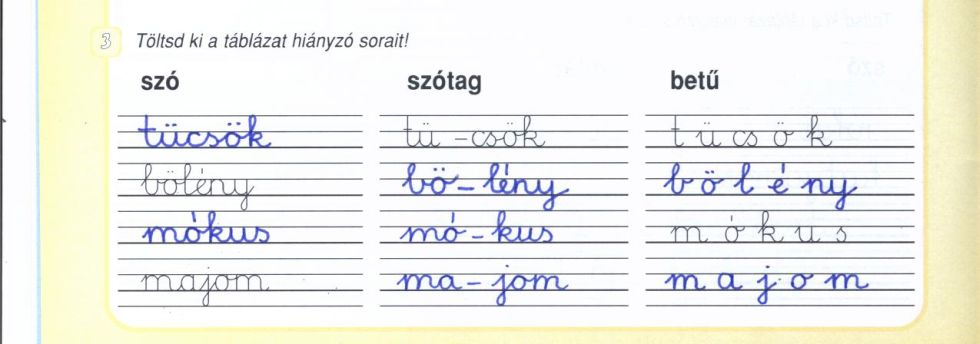 3 Töltsd ki a táblázat hiányzó sorait!
szó szótag betű
tücsök tü-csök t ü cs ö k
bölény bö-lény b ö l é ny
mókus mó-kus m ó k u s
majom ma-jom m a j o m